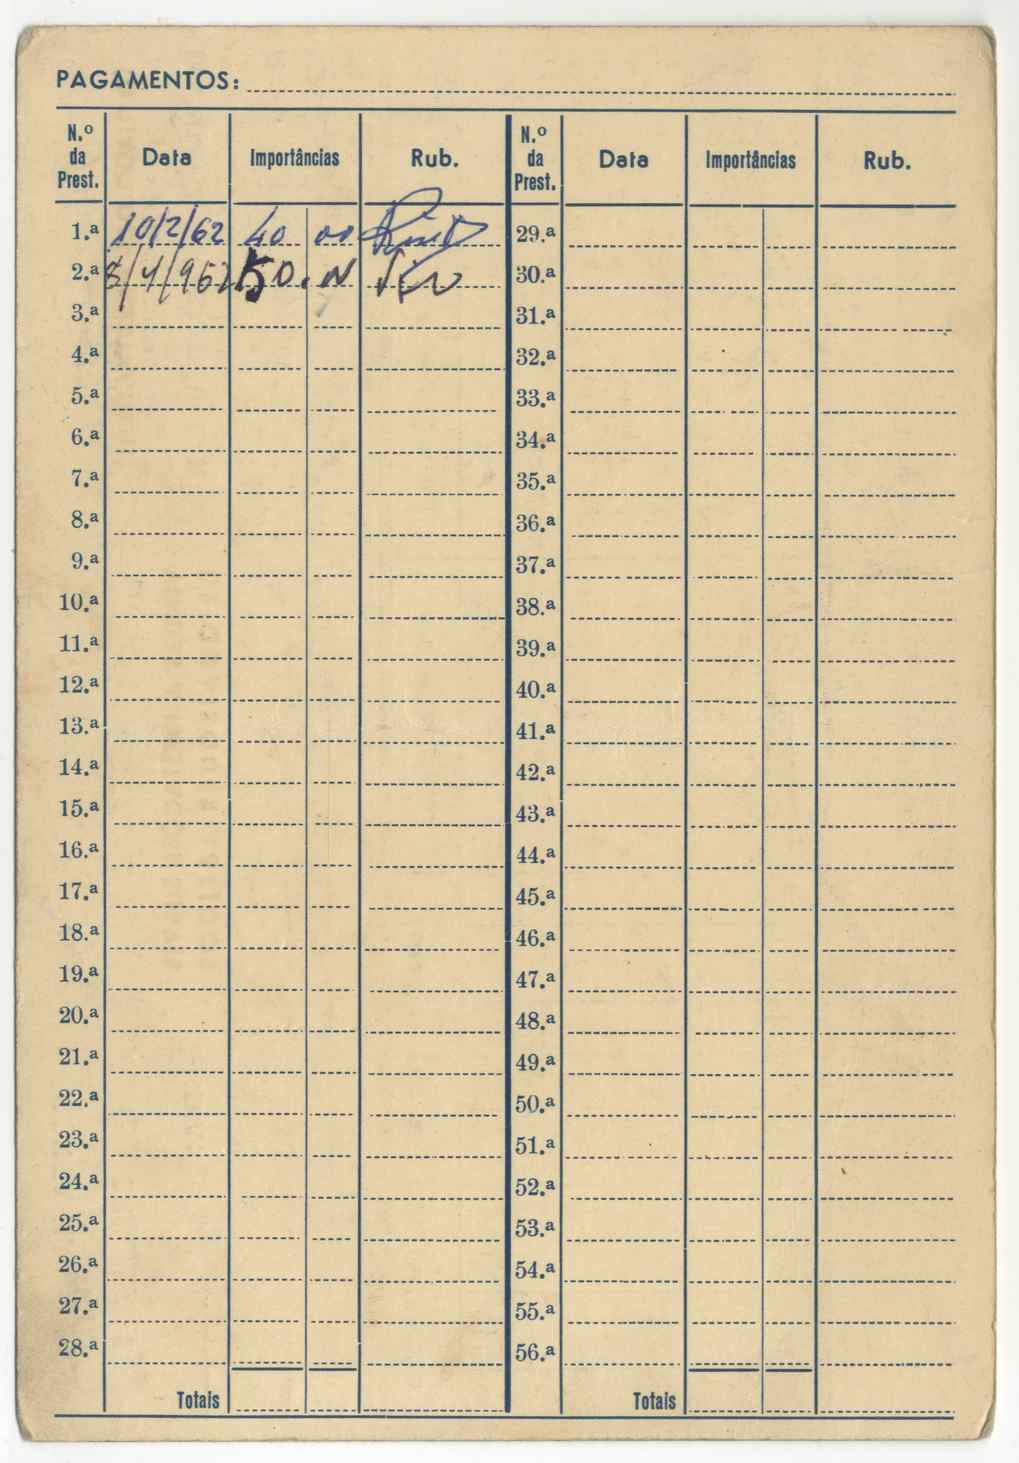 PAGAMENTOS:
N.º da Prest. Data Importâncias Rub. N.º da Prest. Data Importâncias Rub.
1.ª 10/2/62 40 00 29.ª
2.ª 8/4/962 50. 30.ª
3.ª 31.ª
4.ª 32.ª
5.ª 33.ª
6.ª 34.ª
7.ª 35.ª
8.ª 36.ª
9.ª 37.ª
10.ª 38.ª
11.ª 39.ª
12.ª 40.ª
13.ª 41.ª
14.ª 42.ª
15.ª 43.ª
16.ª 44.ª
17.ª 45.ª
18.ª 46.ª
19.ª 47.ª
20.ª 48.ª
21.ª 49.ª
22.ª 50.ª
23.ª 51.ª
24.ª 52.ª
25.ª 53.ª
26.ª 54.ª
27.ª 55.ª
28.ª 56.ª
Totais Totais